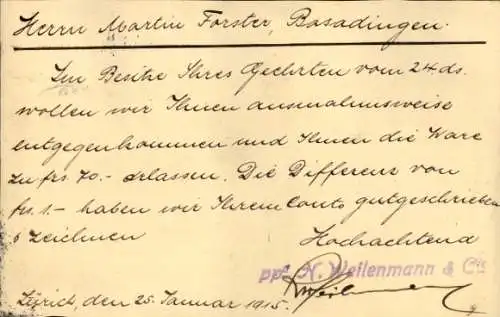 Herrn Martin Forster, Basadingen.
Im Besitze Ihres Geehrten vom 24. ds.
wollen wir Ihnen ausnahmsweise
entgegenkommen und Ihnen die Ware
zu frs. 70.- erlassen. Die Differenz von
frs. 1.- haben wir Ihrem Conto gutgeschrieben
& zeichnen
Hochachtend
ppa. H. Weilenmann & Cie
Zürich, den 25. Januar 1915.